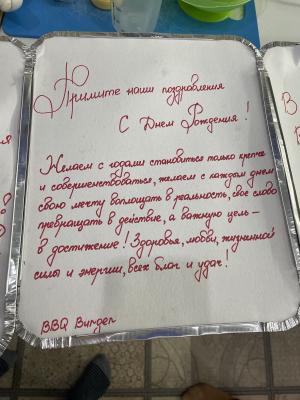 Примите наши поздравления
С Днем Рождения!
Желаем с годами становиться только крепче
и совершенствоваться, желаем с каждым днем
свою мечту воплощать в реальность, свое слово
превращать в действие, а важную цель –
в достижение! Здоровья, любви, жизненной
силы и энергии, всех благ и удач!
BBQ Burger